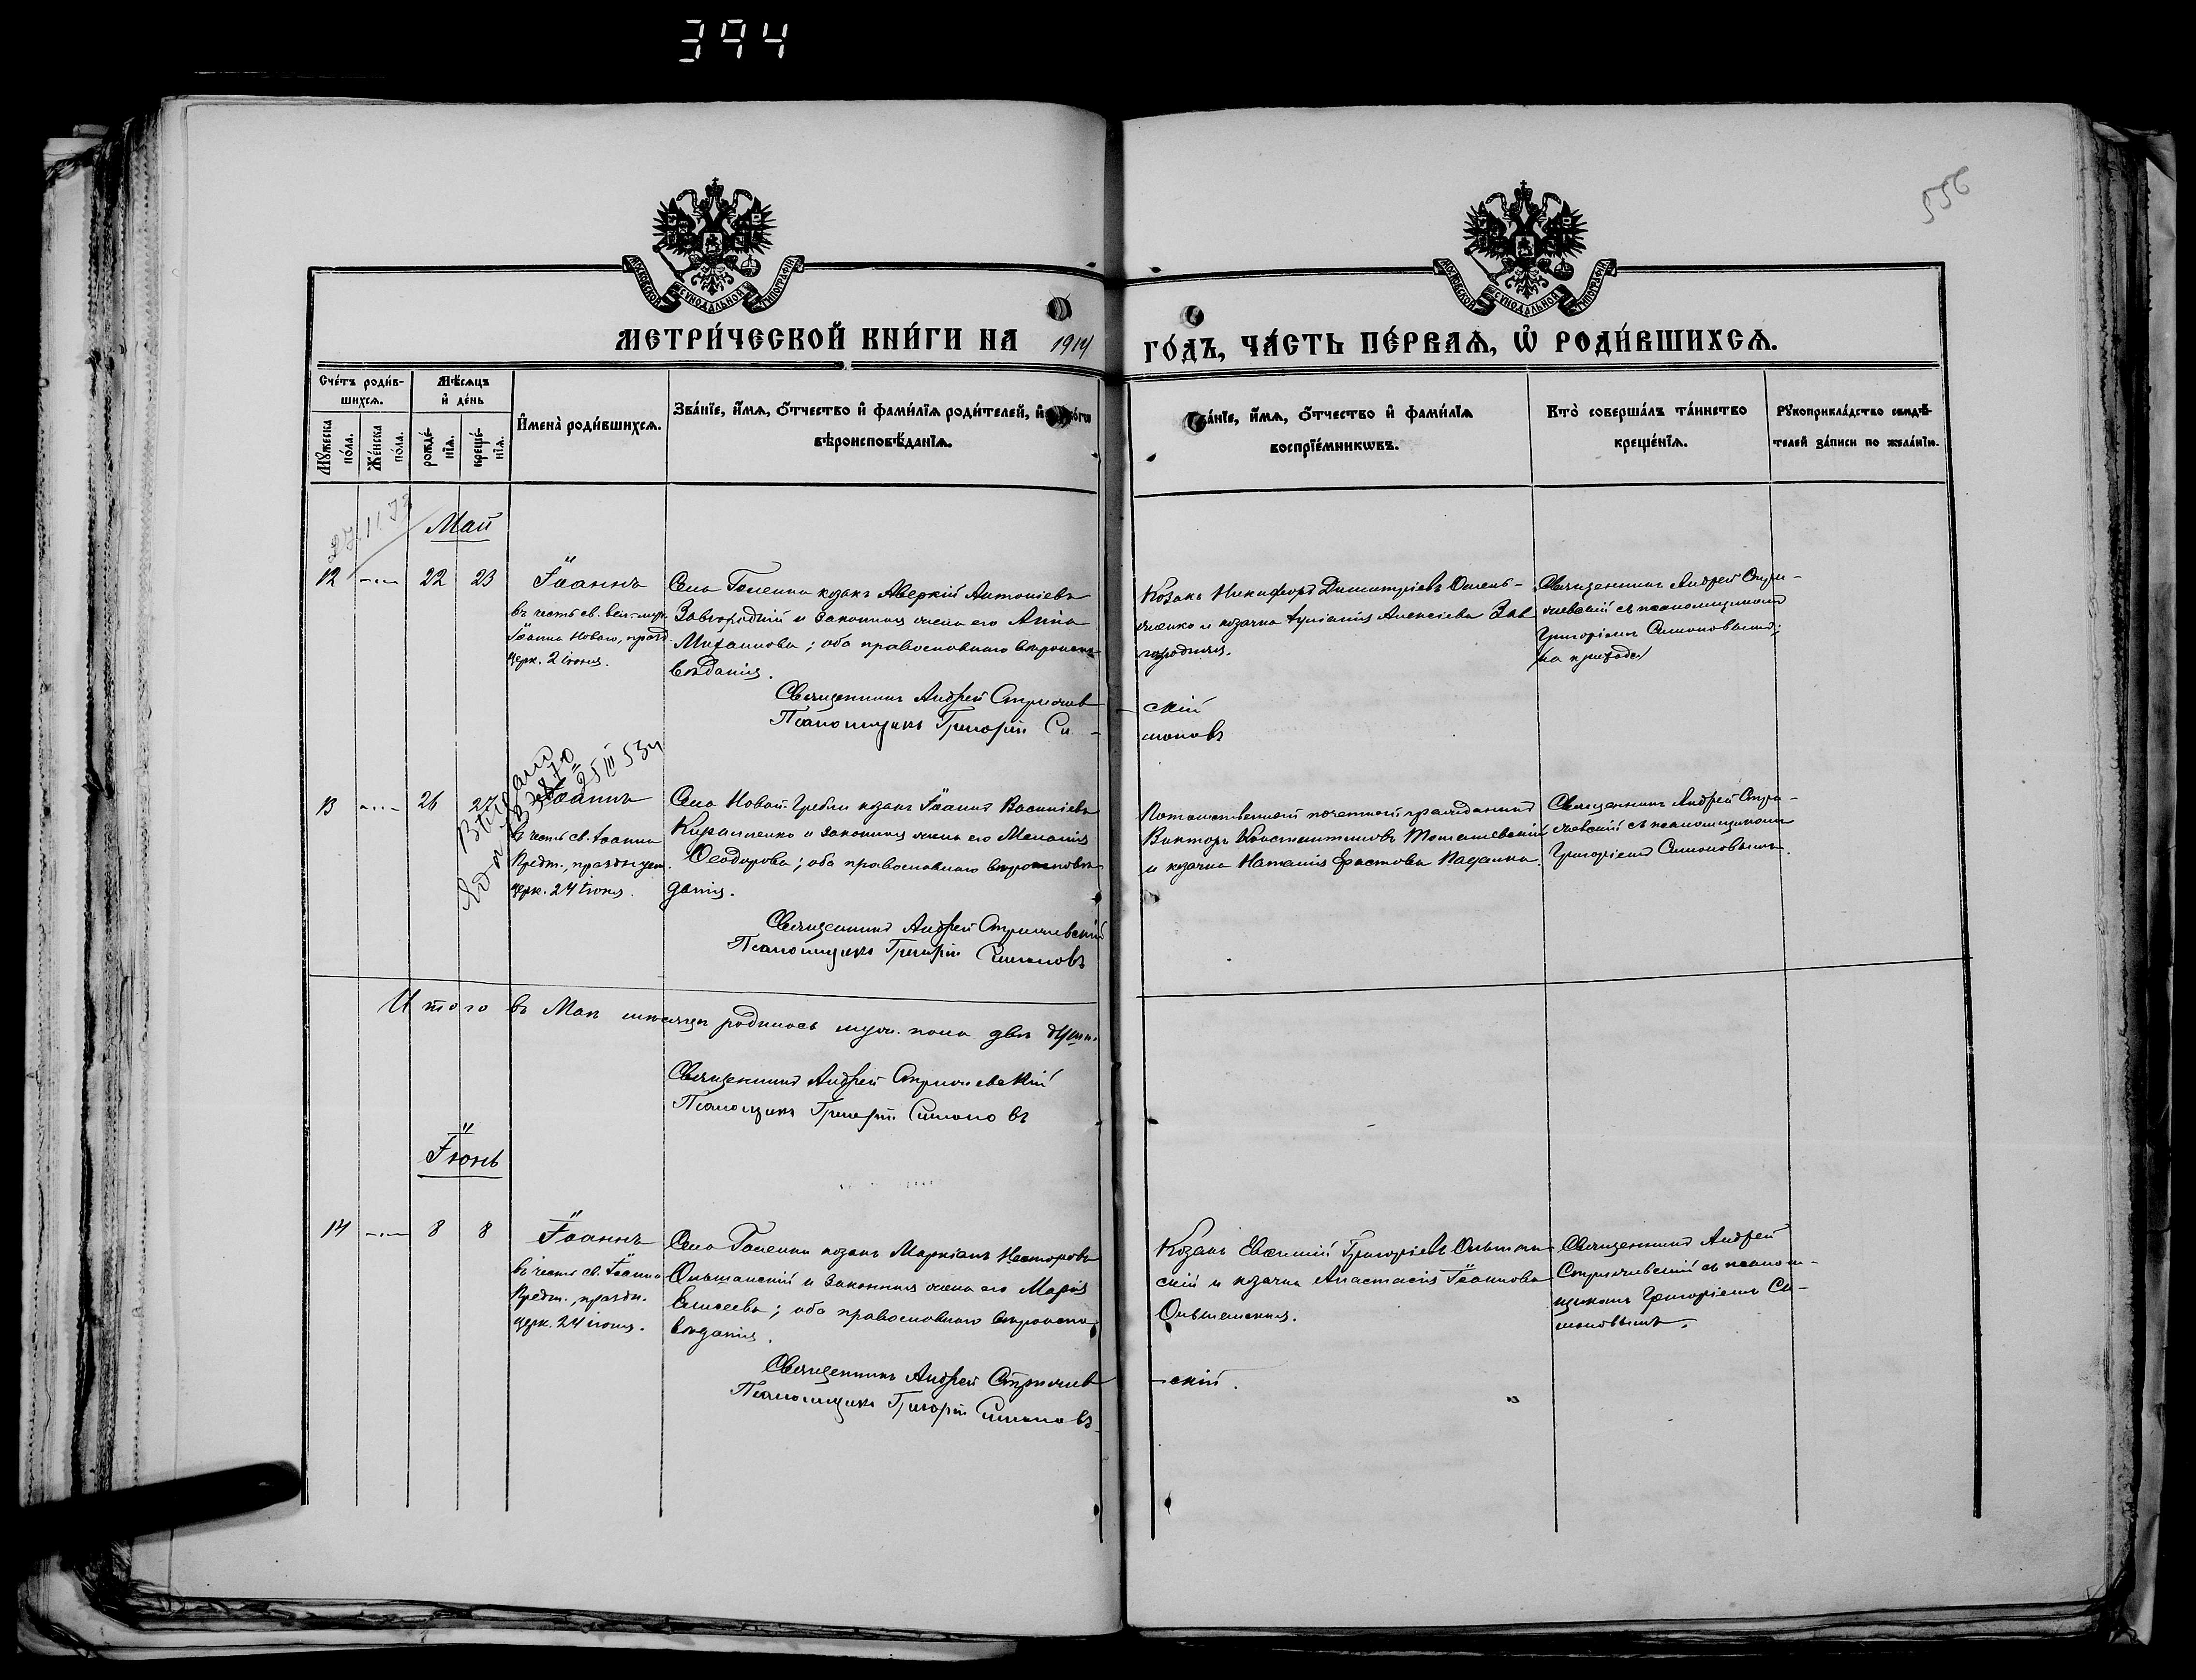 394
556
МОСКОВСКОЙ СУНОДАЛЬНОЙ ТИПОГРАФІИ
МОСКОВСКОЙ СУНОДАЛЬНОЙ ТИПОГРАФІИ
МЕТРИ́ЧЕСКОЙ КНИ́ГИ НА 1914 ГО́ДЪ, ЧА́СТЬ ПЕ́РВАѦ, Ѡ҆ РОДИ́ВШИХСѦ.
Сче́тъ роди́в-
шихсѧ.
Мꙋ́жеска по́ла.
Же́нска по́ла.
Мѣ́сѧцъ
и҆ де́нь
рожде́-
нїѧ.
креще́-
нїѧ.
И҆мена̀ роди́вшихсѧ.
Зва́нїе, и҆́мѧ, ѻ҆́тчество и҆ фами́лїѧ роди́телей, и҆
вѣроисповѣ́данїѧ.
Зва́нїе, и҆́мѧ, ѻ҆́тчество и҆ фами́лїѧ
воспрїе́мникѡвъ.
Кто̀ соверша́лъ та́инство
креще́нїѧ.
Рꙋкоприкла́дство свидѣ́-
телей за́писи по жела́нїю.
Май
12 -"- 22 23
Іоаннъ
въ честь св. вел-муч.
Іоанна Новаго, празд.
церк. 2 іюня.
Села Голенки козакъ Аверкій Антоніевъ
Завгородній и законная жена его Анна
Михаилова; оба православнаго вѣроиспо-
вѣданія.
Священникъ Андрей Стрижев-
скій
Псаломщикъ Григорій Си-
моновъ
Козакъ Никифоръ Димитріевъ
и козачка Іуліанія Алексіева Зав
городняя.
Священникъ Андрей Стри-
жевскій съ псаломщикомъ
Григоріемъ Симоновымъ;
13 -"- 26 27
Іоаннъ
въ честь св. Іоанна
Предт., празднуем.
церк. 24 іюня.
Села Новой-Гребли козакъ Іоаннъ Василіевъ
Кириленко и законная жена его Меланія
Ѳеодорова; оба православнаго вѣроисповѣ
данія.
Священникъ Андрей Стрижевскій
Псаломщикъ Григорій Симоновъ
Потомственный почетный гражданинъ
Викторъ Константиновъ
и козачка Наталія
Священникъ Андрей Стри-
жевскій съ псаломщикомъ
Григоріемъ Симоновымъ.
Итого въ Маѣ мѣсяцѣ родилось муж. пола двѣ души.
Священникъ Андрей Стрижевскій
Псаломщикъ Григорій Симоновъ
Іюнь
14 -"- 8 8
Іоаннъ
въ честь св. Іоанна
Предт., праздн.
церк. 24 іюня.
Села Голенки козакъ Маркіанъ Несторовъ
Ольшанскій и законная жена его Марія
Елисеева; оба православнаго вѣроиспо-
вѣданія.
Священникъ Андрей Стрижев
-скій.
Псаломщикъ Григорій Симоновъ
Козакъ Евѳимій Григоріевъ Ольшан
скій и козачка Анастасія Іоаннова
Ольшанская.
Священникъ Андрей
Стрижевскій съ псалом-
щикомъ Григоріемъ Си-
моновымъ.